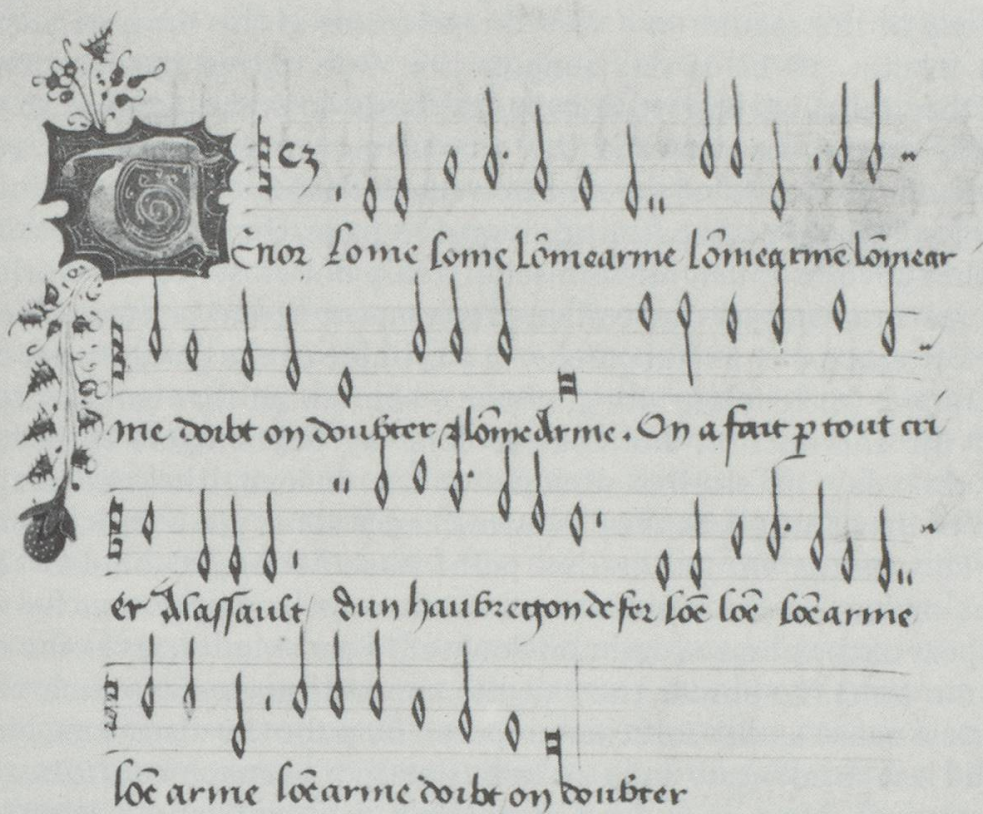 TEnor Lome lome lōmearme lōmearme lōmear
me doibt on doubter lōmeArme. On a fait ꝑ tout cri
er Alassault / dun haubregon de fer lōe lōe lōe arme
lōe arme lōe arme doibt on doubter